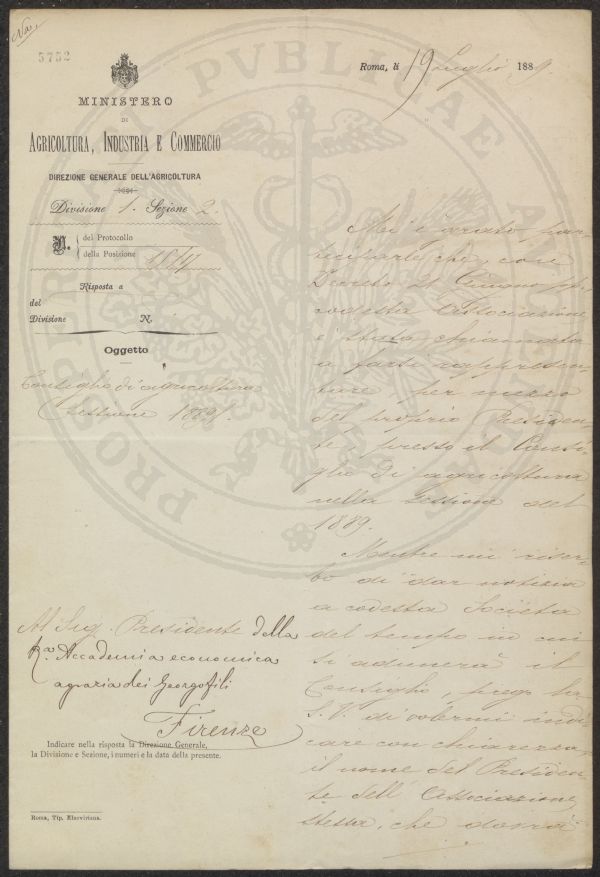 5752
Roma, li 19 Luglio 1889
MINISTERO
DI
AGRICOLTURA, INDUSTRIA E COMMERCIO
DIREZIONE GENERALE DELL'AGRICOLTURA
Divisione 1. Sezione 2.
N. del Protocollo
della Posizione
Risposta a
del
Divisione N.
Oggetto
Consiglio di agricoltura
Sessione 1889.
Al Sig. Presidente della
Ra. Accademia economica
agraria dei Georgofili
Firenze
Indicare nella risposta la Direzione Generale,
la Divisione e Sezione, i numeri e la data della presente.
Roma, Tip. Elzeviriana.
Mi è grato par-
tecipare che, con
Decreto 21 Giugno
codesta Associazione
è stata chiamata
a farsi rappresen-
tare, per mezzo
del proprio Presiden-
te, presso il Consi-
glio di agricoltura
nella Sessione del
1889.
Mentre mi riser-
bo di dar notizia
a codesta Società
del tempo in cui
si adunerà il
Consiglio, prego la
S. V. di volermi indi-
care con chiarezza,
il nome del Presiden-
te dell' Associazione
stessa, che dovrà
PROSPERITATI PVBLICAE AVGENDAE